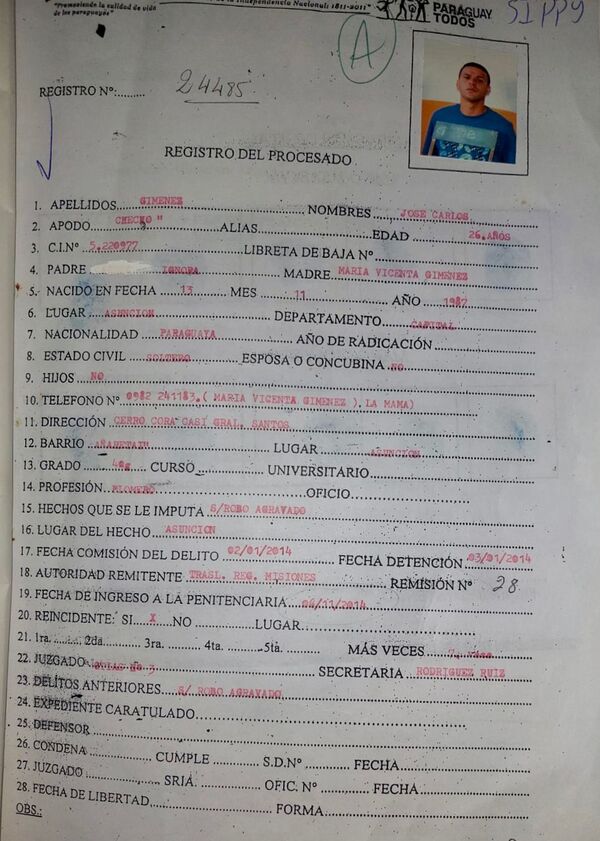 "Promoviendo la calidad de vida de la Independencia Nacional: 1811-2011" PARAGUAY
de los paraguayos" TODOS
A
REGISTRO Nº:......... 24485
REGISTRO DEL PROCESADO
1. APELLIDOS GIMENEZ NOMBRES JOSE CARLOS
2. APODO CHECHO " ALIAS EDAD 26.AÑOS
3. C.I.Nº 5.220977 LIBRETA DE BAJA Nº
4. PADRE IGNORA MADRE MARIA VICENTA GIMENEZ
5. NACIDO EN FECHA 13 MES 11 AÑO 1987
6. LUGAR ASUNCION DEPARTAMENTO CAPITAL
7. NACIONALIDAD PARAGUAYA AÑO DE RADICACIÓN
8. ESTADO CIVIL SOLTERO ESPOSA O CONCUBINA NO
9. HIJOS NO
10. TELEFONO Nº 0982 241183.( MARIA VICENTA GIMENEZ ). LA MAMA)
11. DIRECCIÓN CERRO CORA CASI GRAL. SANTOS
12. BARRIO LUGAR ASUNCION
13. GRADO CURSO UNIVERSITARIO
14. PROFESIÓN PLOMERO OFICIO
15. HECHOS QUE SE LE IMPUTA S/ROBO AGRAVADO
16. LUGAR DEL HECHO ASUNCION
17. FECHA COMISIÓN DEL DELITO 02/01/2014 FECHA DETENCIÓN 03/01/2014
18. AUTORIDAD REMITENTE TRASL. REG. MISIONES REMISIÓN Nº 28
19. FECHA DE INGRESO A LA PENITENCIARIA 06/11/2014
20. REINCIDENTE: SI X NO LUGAR
21. 1ra. 2da. 3ra. 4ta. 5ta. MÁS VECES
22. JUZGADO Nº 3 SECRETARIA RODRIGUEZ RUIZ
23. DELITOS ANTERIORES S/ ROBO AGRAVADO
24. EXPEDIENTE CARATULADO
25. DEFENSOR
26. CONDENA CUMPLE S.D.Nº FECHA
27. JUZGADO SRIA. OFIC. Nº FECHA
28. FECHA DE LIBERTAD FORMA
OBS.: